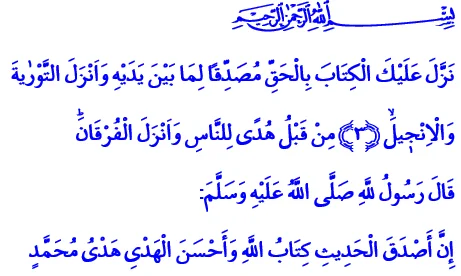 بِسْمِ اللّٰهِ الرَّحْمٰنِ الرَّحِيمِ
نَزَّلَ عَلَيْكَ الْكِتَابَ بِالْحَقِّ مُصَدِّقًا لِمَا بَيْنَ يَدَيْهِ وَاَنْزَلَ التَّوْرٰيةَ
وَالْاِنْج۪يلَۙ ﴿٣﴾ مِنْ قَبْلُ هُدًى لِلنَّاسِ وَاَنْزَلَ الْفُرْقَانَۜ
قَالَ رَسُولُ للَّهِ صَلَّى اللَّهُ عَلَيْهِ وَسَلَّمَ:
إِنَّ أَصْدَقَ الْحَدِيثِ كِتَابُ اللَّهِ وَأَحْسَنَ الْهَدْيِ هَدْيُ مُحَمَّدٍ